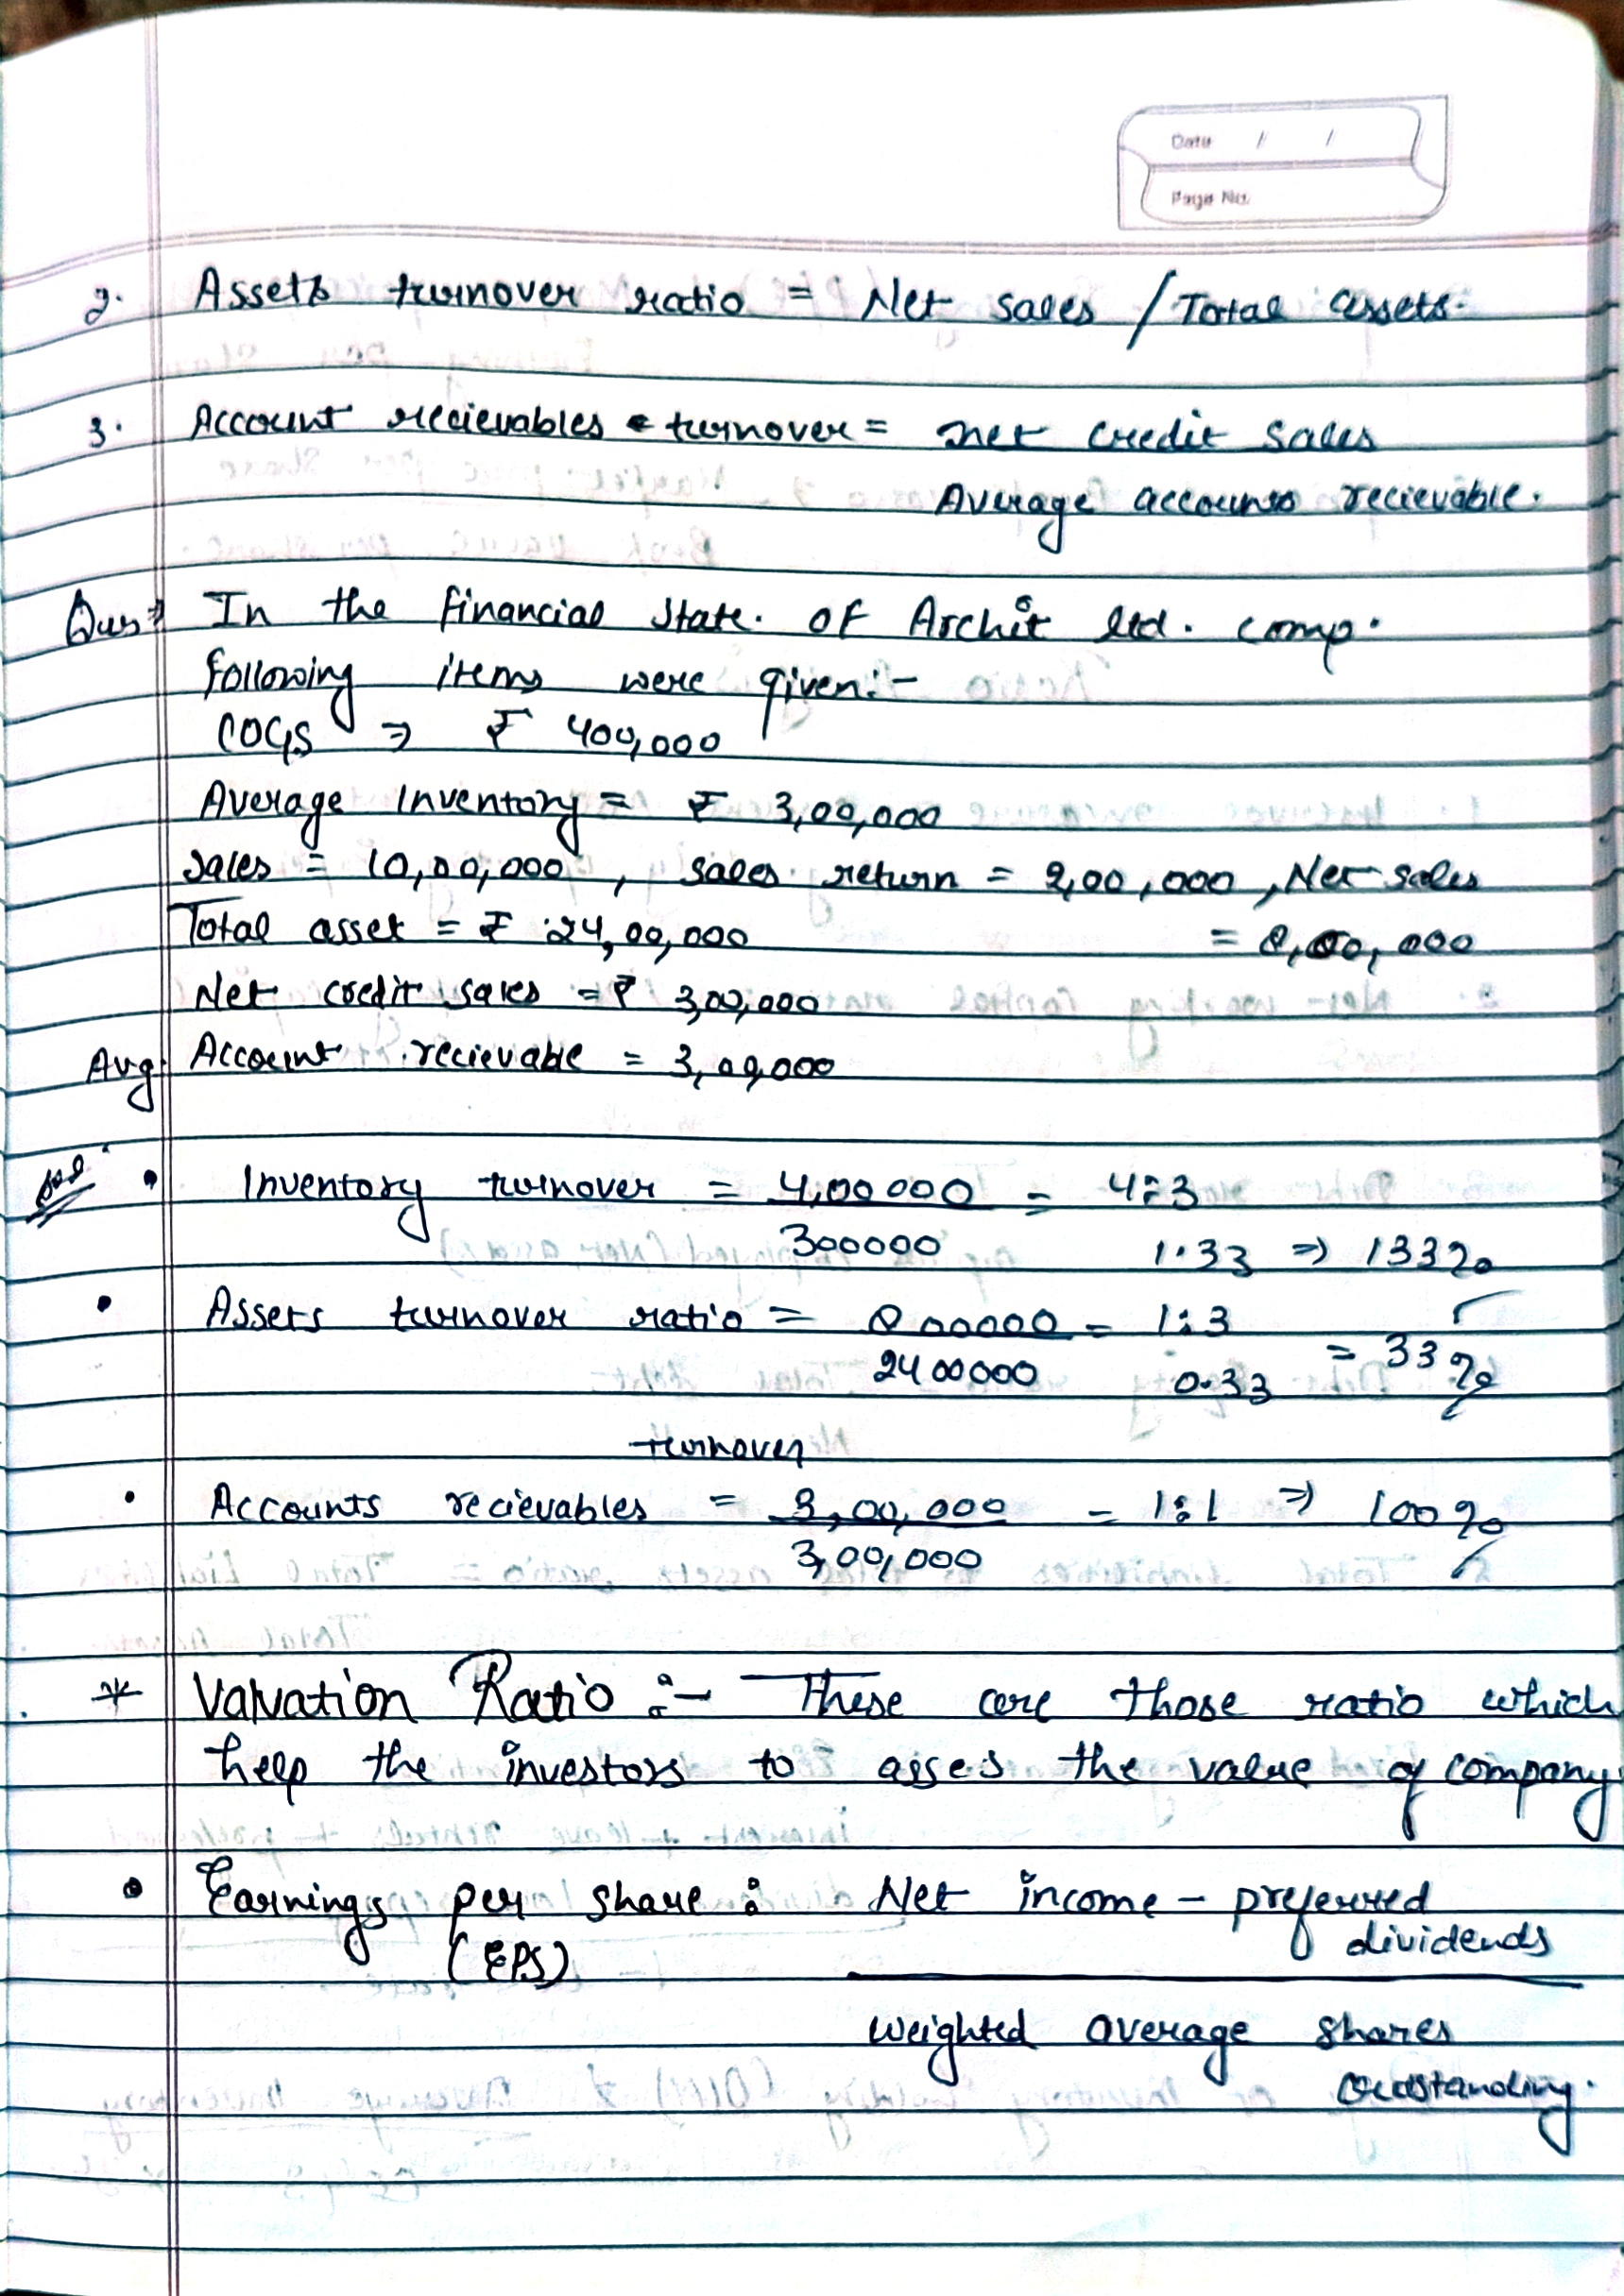 Date / /
Page No.
2. Assets turnover ratio = Net sales / Total assets.
3. Account recievables turnover = net credit sales
Average accounts recievable.
Ques⇒ In the financial state. of Archit ltd. comp.
following items were given:-
COGS ⇒ ₹ 400,000
Average Inventory = ₹ 3,00,000
Sales = 10,00,000, sales return = 2,00,000, Net sales
Total asset = ₹ 24,00,000 = 8,00,000
Net credit sales = ₹ 3,00,000
Avg. Account recievable = 3,00,000
Sol.
• Inventory turnover = 4,00000 = 4:3
300000 1.33 ⇒ 133%
• Assets turnover ratio = 800000 = 1:3
2400000 0.33 = 33%
turnover
• Accounts recievables = 3,00,000 = 1:1 ⇒ 100%
3,00,000
* Valuation Ratio :- These are those ratio which
help the investors to asses the value of company.
• Earnings per share : Net income - preferred
(EPS) dividends
weighted average shares
outstanding.